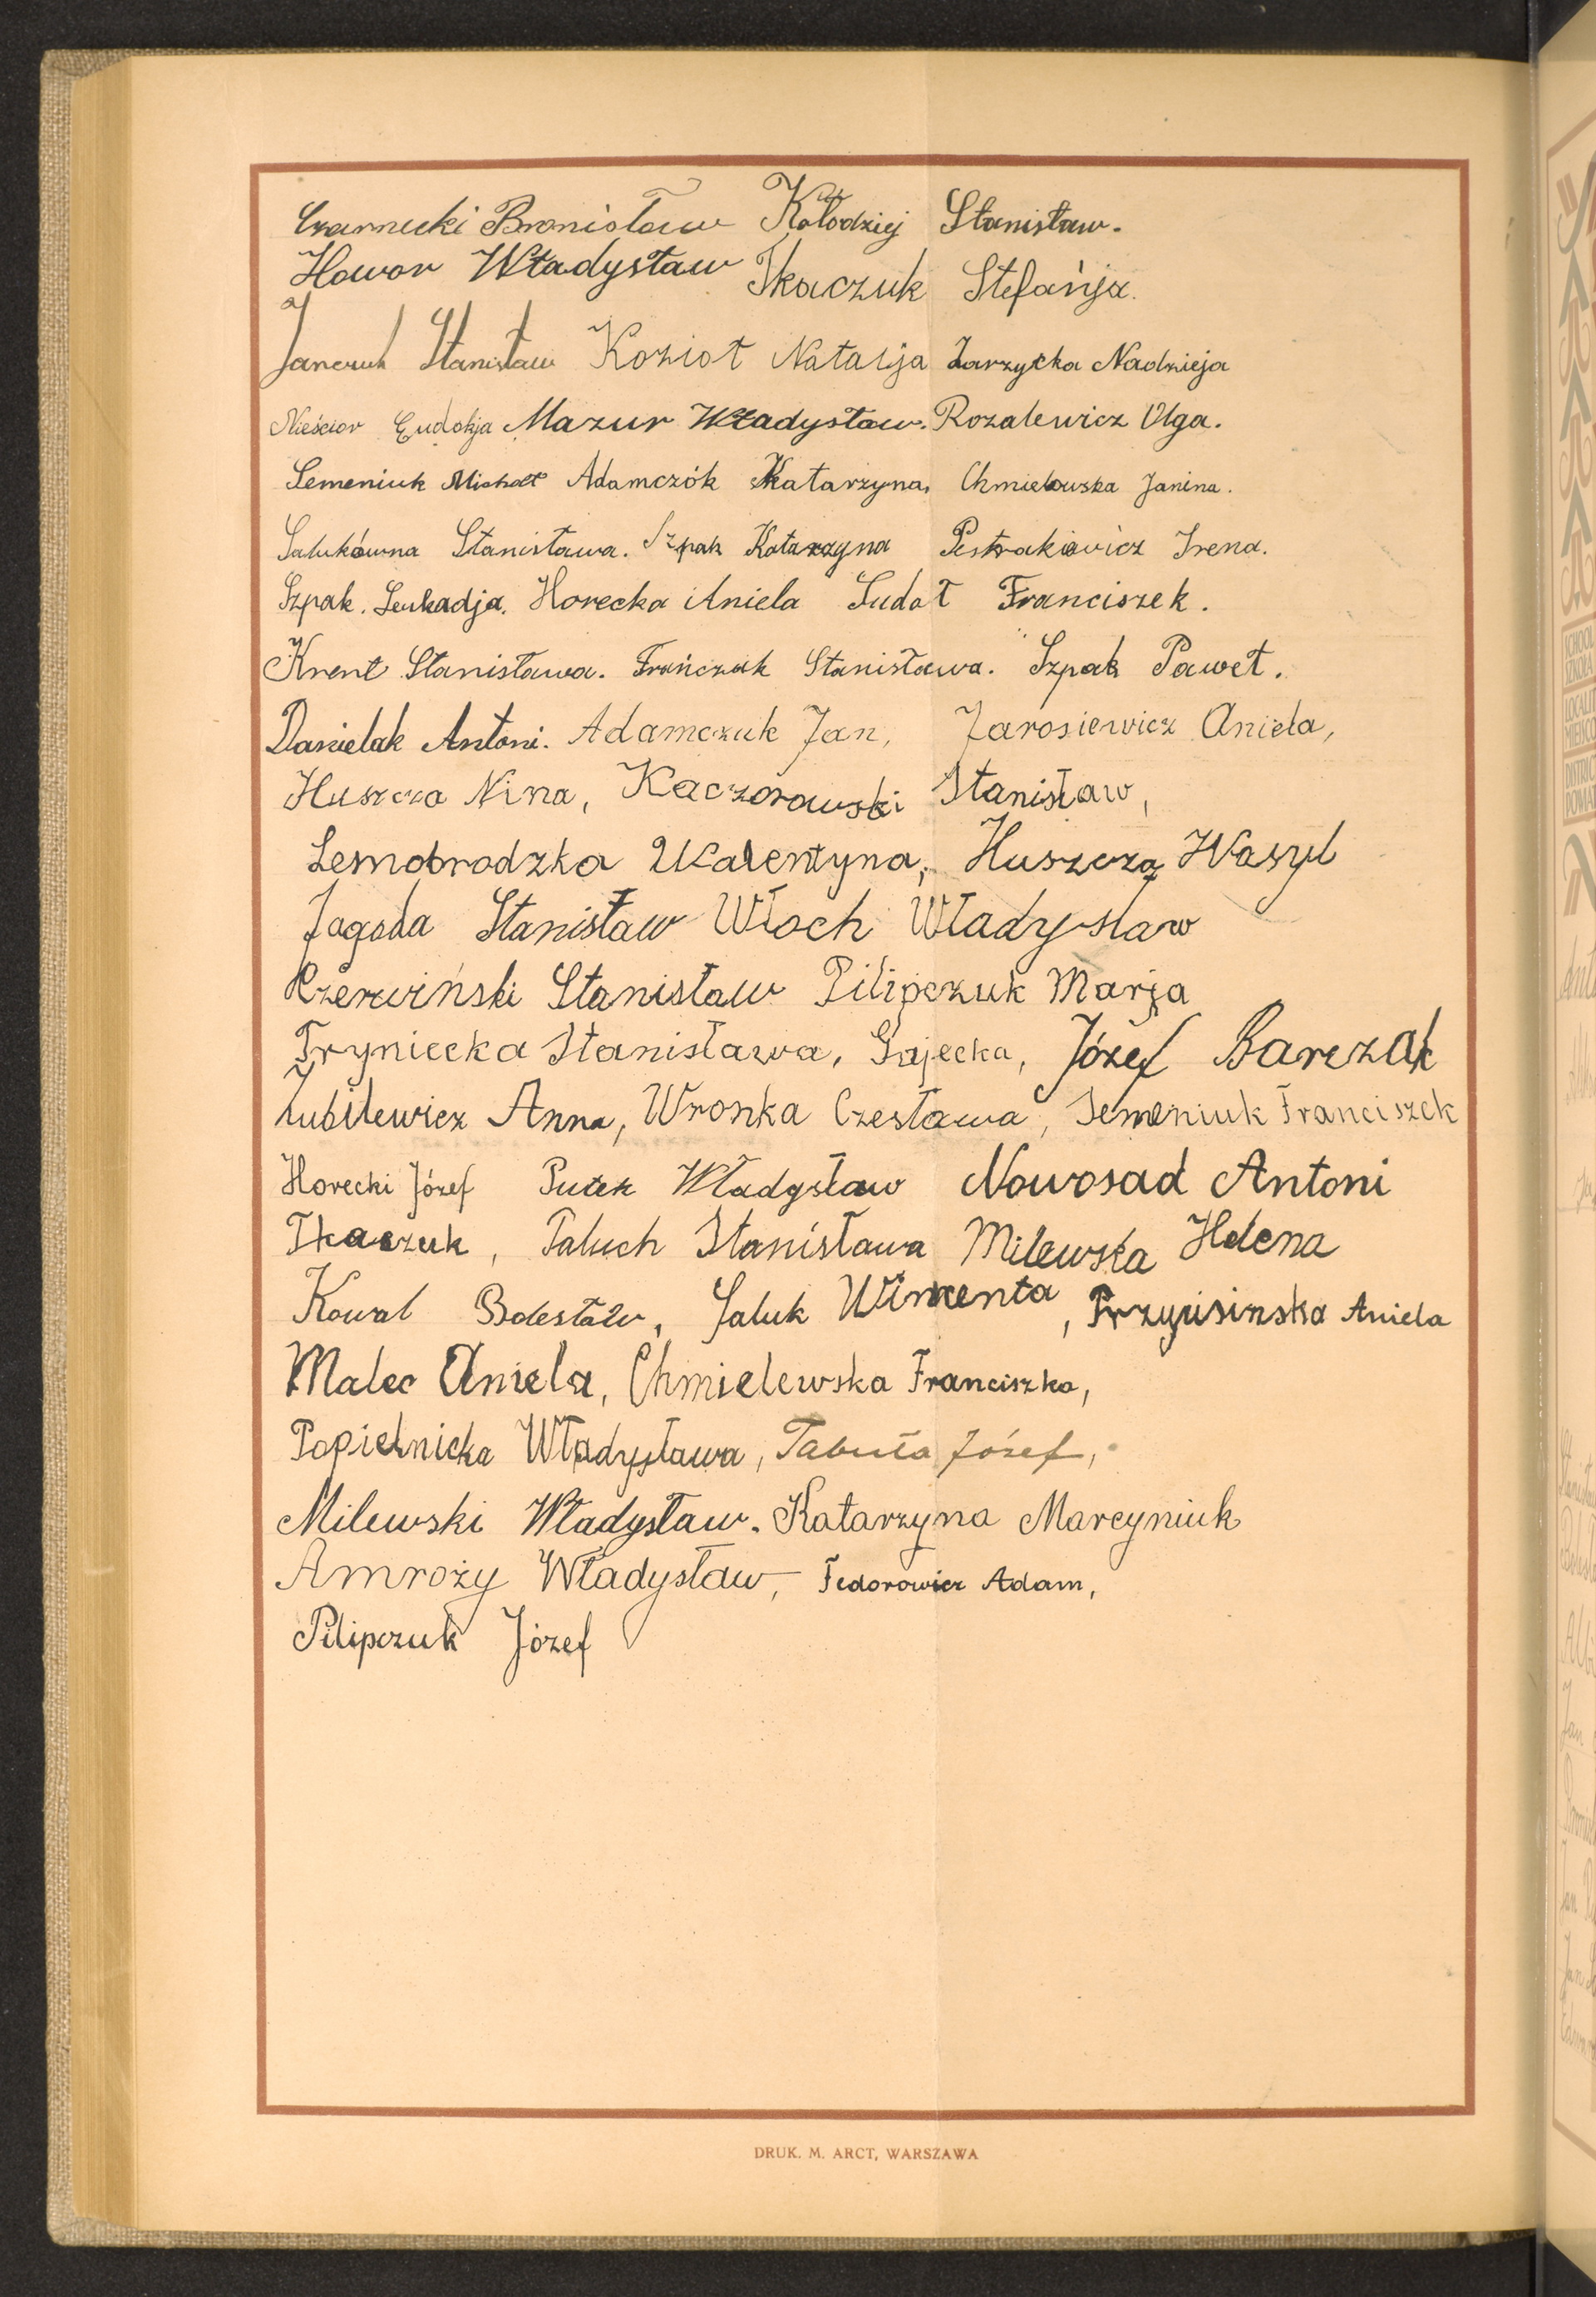 Czarnecki Bronisław Kołodziej Stanisław.
Howor Władysław Tkaczuk Stefańja.
Janczuk Stanisław Kozioł Natalja Zarzycka Nadzieja
Nieścior Eudokja Mazur Władysław. Rozalewicz Olga.
Semeniuk Michał Adamczók Katarzyna, Chmielowska Janina.
Salukówna Stanisława. Szpak Katarzyna Pestrakiewicz Irena.
Szpak. Leukadja. Horecka Aniela Sudoł Franciszek.
Krent Stanisława. Frańczuk Stanisława. Szpak Paweł.
Danielak Antoni. Adamczuk Jan, Jarosiewicz Aniela,
Huszcza Nina, Kaczorowski Stanisław,
Lemobrodzka Walentyna, Huszcza Wasyl
Jagoda Stanisław Włoch Władysław
Czerwiński Stanisław Pilipczuk Marja
Tryniecka Stanisława, Gajecka, Józef Barczak
Jubilewicz Anna, Wronka Czesława, Semeniuk Franciszek
Horecki Józef Putek Władysław Nowosad Antoni
Tkaczuk, Paluch Stanisława Milewska Helena
Kowal Bolesław, Saluk Wincenta, Aniela
Malec Aniela, Chmielewska Franciszka,
Popielnicka Władysława, Tabuła Józef,
Milewski Władysław. Katarzyna Marcyniuk
Amroży Władysław, Fedorowicz Adam,
Pilipczuk Józef
DRUK. M. ARCT, WARSZAWA